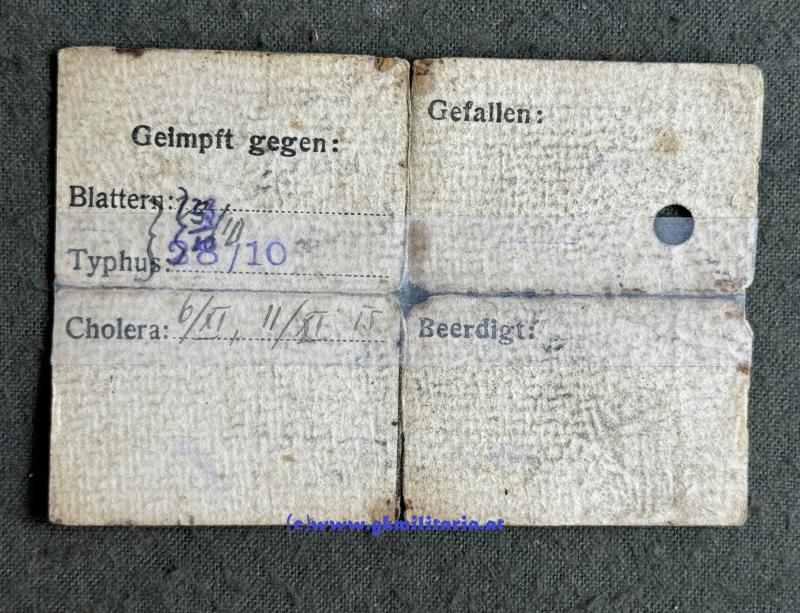 Geimpft gegen:
Blattern:
Typhus: 28/10
Cholera: 6/XI, 11/XI 15
Gefallen:
Beerdigt:
(c)www.gbmilitaria.at